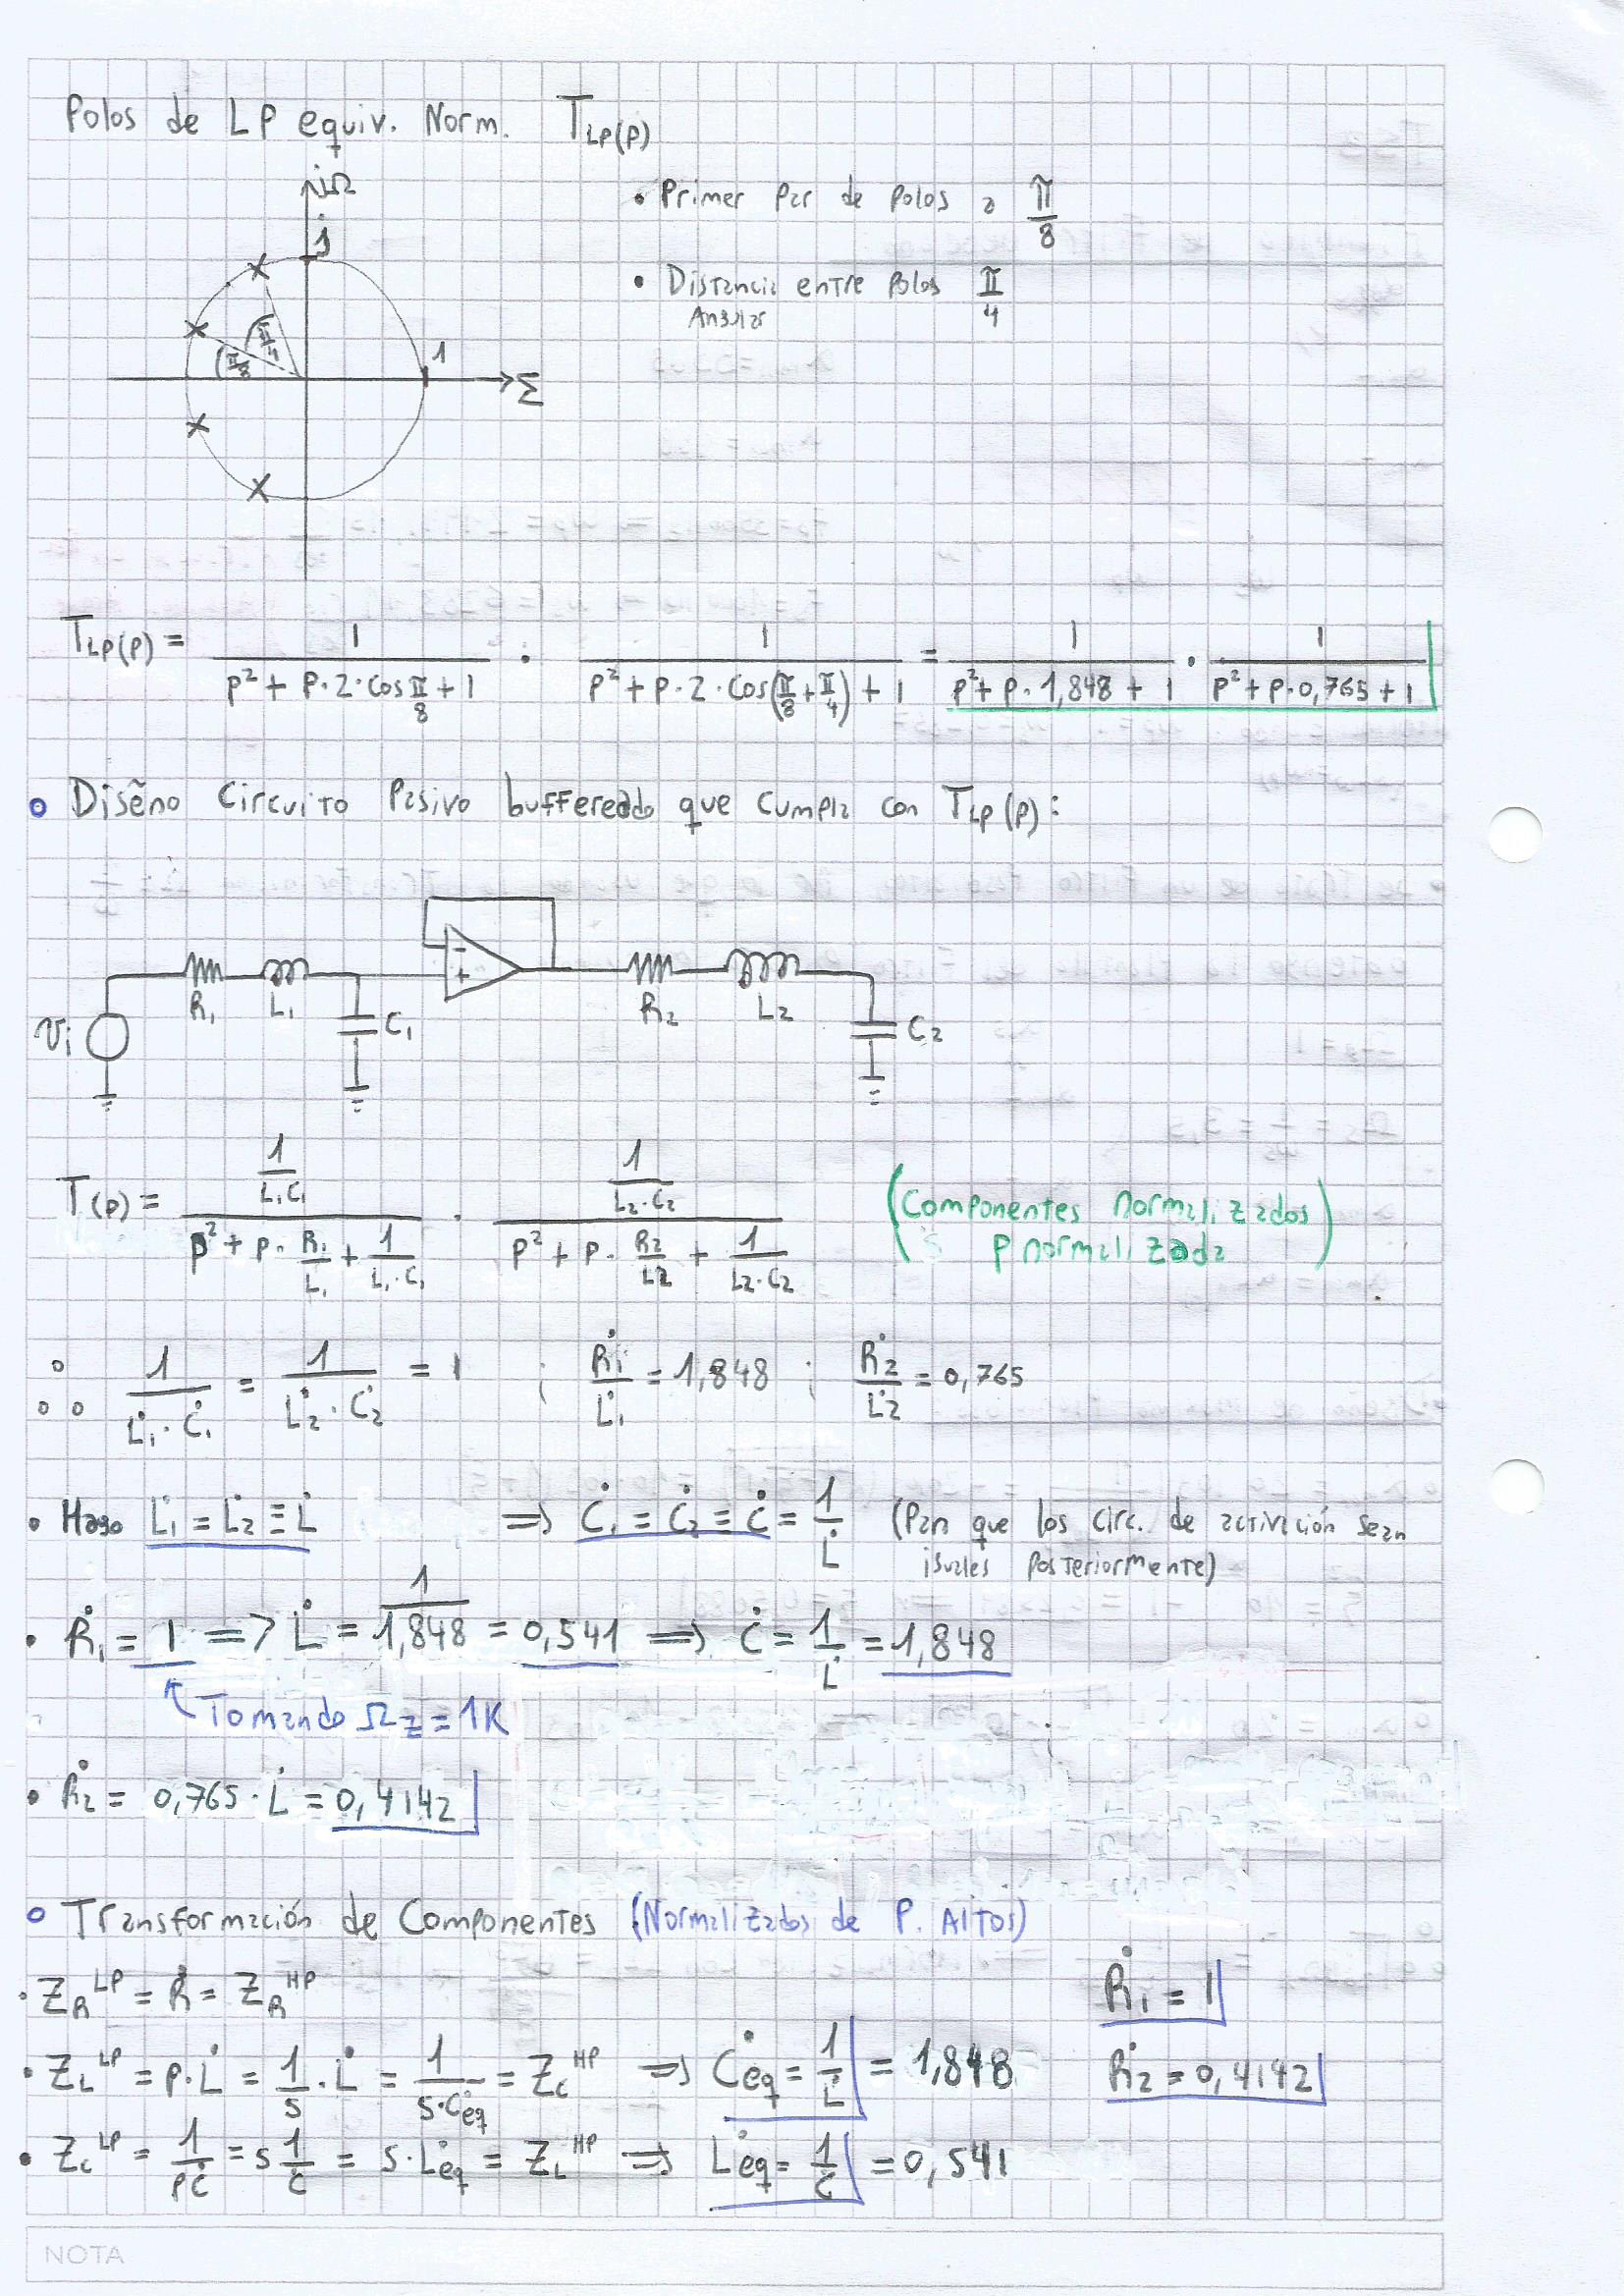 Polos de LP equiv. Norm. T_LP(P)
jΩ
• Primer Par de Polos a π/8
1
• Distancia entre Polos π/4
Angular
π/4
π/8
1
Σ
T_LP(P) = 1/(P² + P·2·cos π/8 + 1) · 1/(P² + P·2·cos(π/8 + π/4) + 1) = 1/(P² + P·1,848 + 1) · 1/(P² + P·0,765 + 1)
• Diseño Circuito Pasivo buffereado que cumpla con T_LP(P):
- +
R₁ L₁ R₂ L₂
Vi C₁ C₂
T(P) = (1/(L₁C₁))/(P² + P·R₁/L₁ + 1/(L₁·C₁)) · (1/(L₂·C₂))/(P² + P·R₂/L₂ + 1/(L₂·C₂))
(Componentes normalizados
P normalizada)
∴ 1/(L̇₁·Ċ₁) = 1/(L̇₂·Ċ₂) = 1 ; Ṙ₁/L̇₁ = 1,848 ; Ṙ₂/L̇₂ = 0,765
• Hago L̇₁ = L̇₂ ≡ L̇ ⟹ Ċ₁ = Ċ₂ ≡ Ċ = 1/L̇ (Para que los circ. de activación sean
iguales posteriormente)
• Ṙ₁ = 1 ⟹ L̇ = 1/1,848 = 0,541 ⟹ Ċ = 1/L̇ = 1,848
Tomando Ω_Z = 1K
• Ṙ₂ = 0,765·L̇ = 0,4142
• Transformación de Componentes (Normalizados de P. Altos)
• Z_R^LP = Ṙ = Z_R^HP
Ṙ₁ = 1
• Z_L^LP = P·L̇ = 1/S·L̇ = 1/(S·Ċeq) = Z_C^HP ⟹ Ċeq = 1/L̇ = 1,848
Ṙ₂ = 0,4142
• Z_C^LP = 1/(PĊ) = S 1/Ċ = S·L̇eq = Z_L^HP ⟹ L̇eq = 1/Ċ = 0,541
NOTA